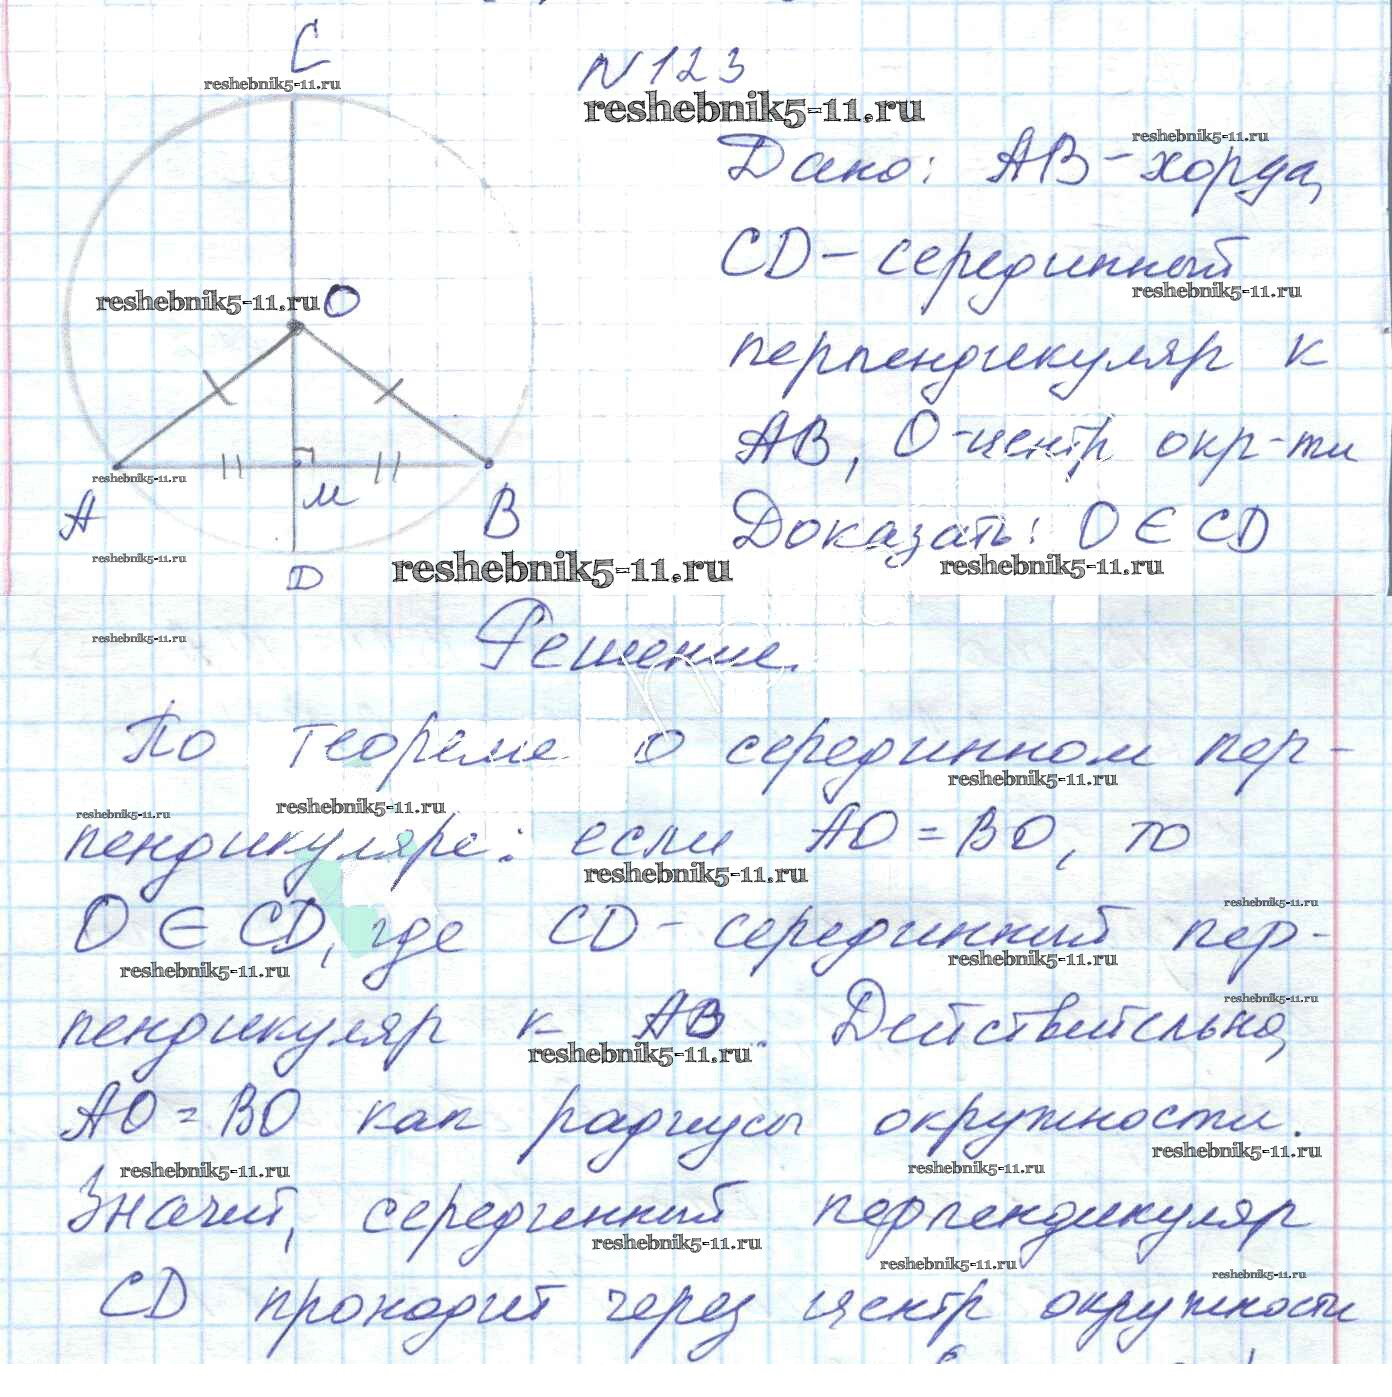 C
N 123
reshebnik5-11.ru
reshebnik5-11.ru
reshebnik5-11.ru
Дано: AB - хорда,
CD - серединный
reshebnik5-11.ru
reshebnik5-11.ru O
перпендикуляр к
AB, O - центр окр-ти
reshebnik5-11.ru
M
A
B
Доказать: O ∈ CD
reshebnik5-11.ru
reshebnik5-11.ru
reshebnik5-11.ru
D
reshebnik5-11.ru
Решение.
По теореме о серединном пер-
reshebnik5-11.ru
reshebnik5-11.ru
reshebnik5-11.ru
пендикуляре: если AO = BO, то
reshebnik5-11.ru
reshebnik5-11.ru
O ∈ CD, где CD - серединный пер-
reshebnik5-11.ru
reshebnik5-11.ru
reshebnik5-11.ru
пендикуляр к AB. Действительно,
reshebnik5-11.ru
AO = BO как радиусы окружности.
reshebnik5-11.ru
reshebnik5-11.ru
reshebnik5-11.ru
Значит, серединный перпендикуляр
reshebnik5-11.ru
reshebnik5-11.ru
reshebnik5-11.ru
CD проходит через центр окружности